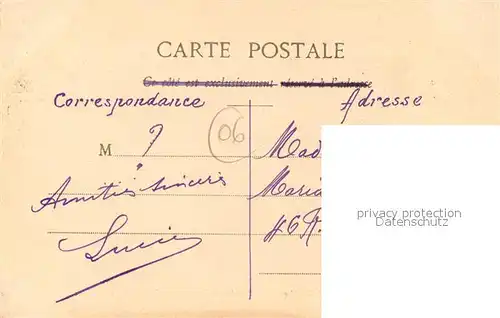 CARTE POSTALE
Ce côté est exclusivement réservé à l'adresse
Correspondance
Adresse
M ?
06
Amitiés sincères
Lucie
Mad
Maria
46 R.
privacy protection
Datenschutz